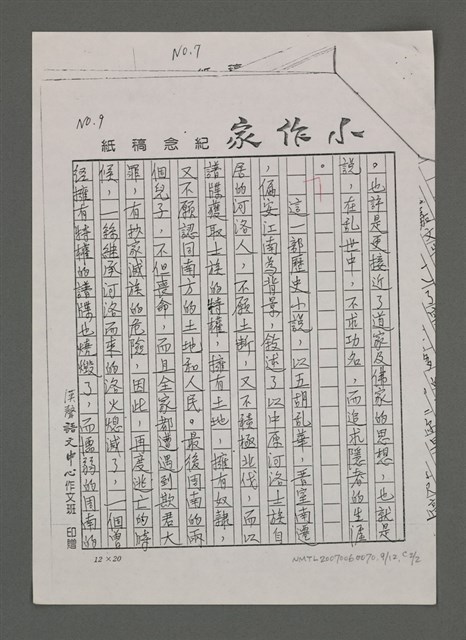 NO.7
NO.9
小作家
紀念稿紙
。也許是更接近了道家及儒家的思想，也就是
說，在乱世中，不求功名，而追求隱者的生涯
。
這一部歷史小說，以五胡乱華，晋室南渡
，偏安江南為背景，敘述了以中原河洛士族自
居的河洛人，不願土斷，又不積極北伐，而以
譜牒獲取士族的特權，擁有土地，擁有奴隸，
又不願認同南方的土地和人民。最後周南的兩
個兒子，不但喪命，而且全家都遭遇到欺君大
罪，有抄家滅族的危險，因此，再度逃亡的時
候，一絲繼承河洛而來的洛火熄滅了，一個曾
經擁有特權的譜牒也燒燬了，而懦弱的周南的
漢聲語文中心作文班 印贈
12×20
NMTL20070060070.9/12.C2/2